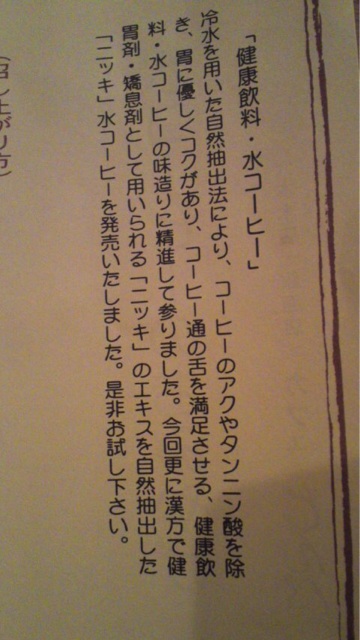 「健康飲料・水コーヒー」
冷水を用いた自然抽出法により、コーヒーのアクやタンニン酸を除
き、胃に優しくコクがあり、コーヒー通の舌を満足させる、健康飲
料・水コーヒーの味造りに精進して参りました。今回更に漢方で健
胃剤・矯息剤として用いられる「ニッキ」のエキスを自然抽出した
「ニッキ」水コーヒーを発売いたしました。是非お試し下さい。
（召し上がり方）